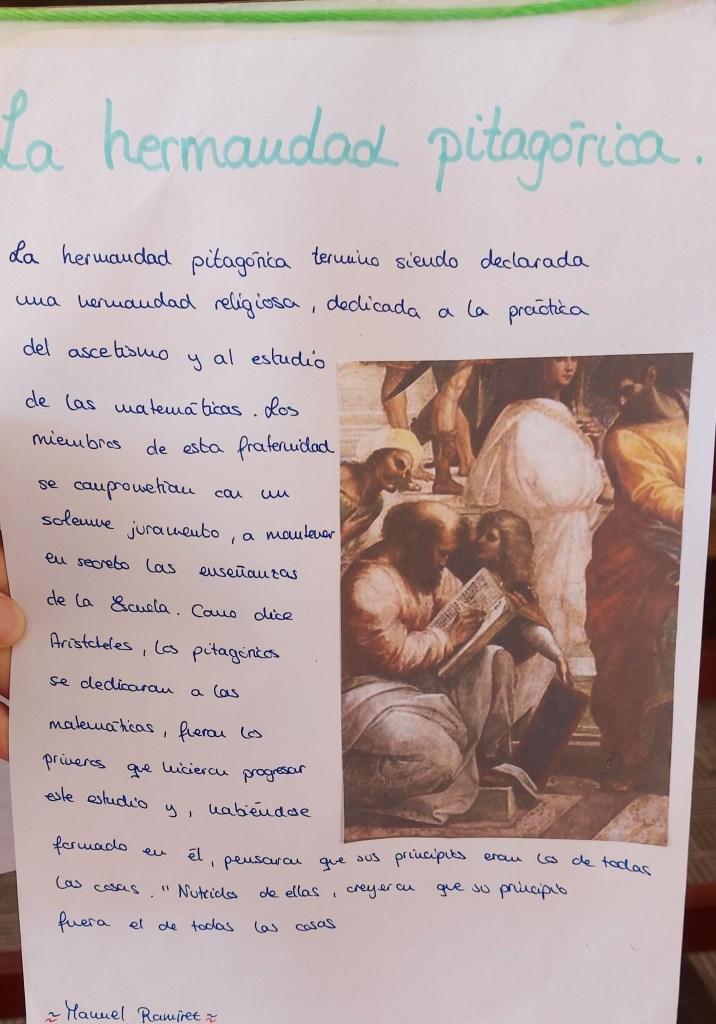 La hermandad pitagórica.
La hermandad pitagórica termino siendo declarada
una hermandad religiosa, dedicada a la práctica
del ascetismo y al estudio
de las matemáticas. Los
miembros de esta fraternidad
se comprometían con un
solemne juramento, a mantener
en secreto las enseñanzas
de la Escuela. Como dice
Aristóteles, los pitagóricos
se dedicaron a las
matemáticas, fueron los
primeros que hicieron progresar
este estudio y, habiéndose
formado en él, pensaron que sus principios eran los de todas
las cosas. "Nutridos de ellas, creyeron que su principio
fuera el de todas las cosas
~ Manuel Ramírez ~